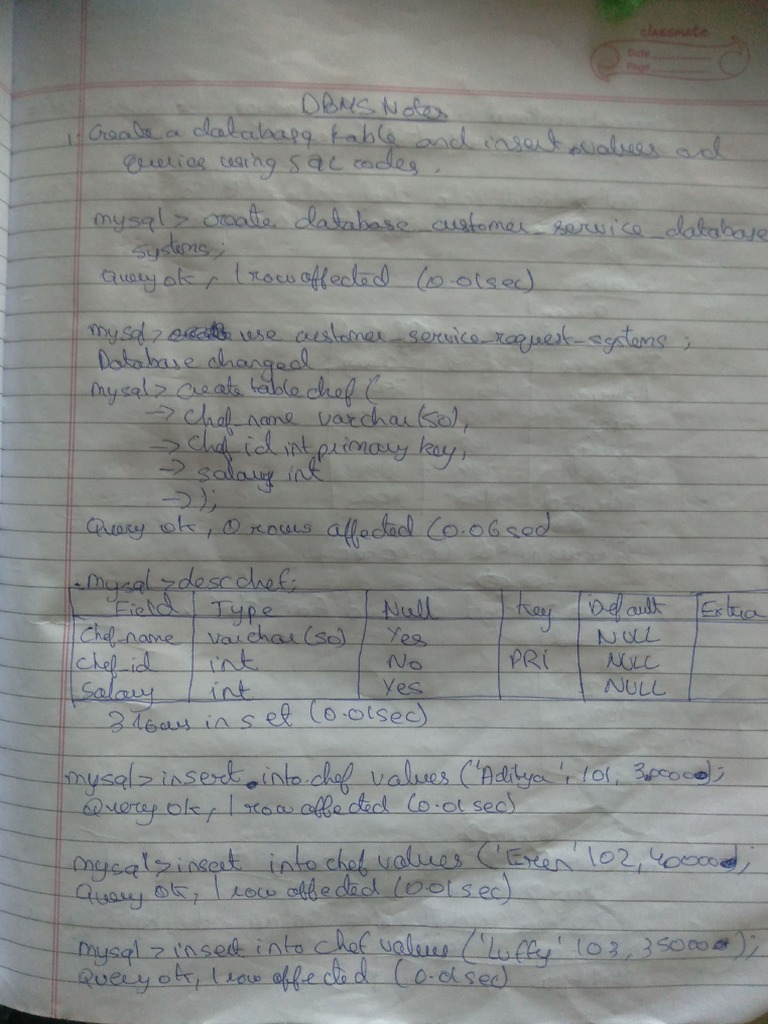 classmate
Date
Page
DBMS Notes
1. Create a database table and insert values and
queries using SQL codes.
mysql> create database customer_service_database
systems;
Query ok, 1 row affected (0.01sec)
mysql> use customer_service_request_systems;
Database changed
mysql> create table chef (
-> Chef_name varchar(50),
-> Chef_id int primary key,
-> salary int
-> );
Query ok, 0 rows affected (0.06sec)
mysql>desc chef;
Field Type Null Key Default Extra
Chef_name varchar(50) Yes NULL
Chef_id int No PRI NULL
Salary int Yes NULL
3 rows in set (0.01sec)
mysql>insert into chef values ('Aditya', 101, 300000);
Query ok, 1 row affected (0.01sec)
mysql>insert into chef values ('Eren' 102, 400000);
Query ok, 1 row affected (0.01sec)
mysql>insert into chef values ('Luffy' 103, 350000);
Query ok, 1 row affected (0.01sec)